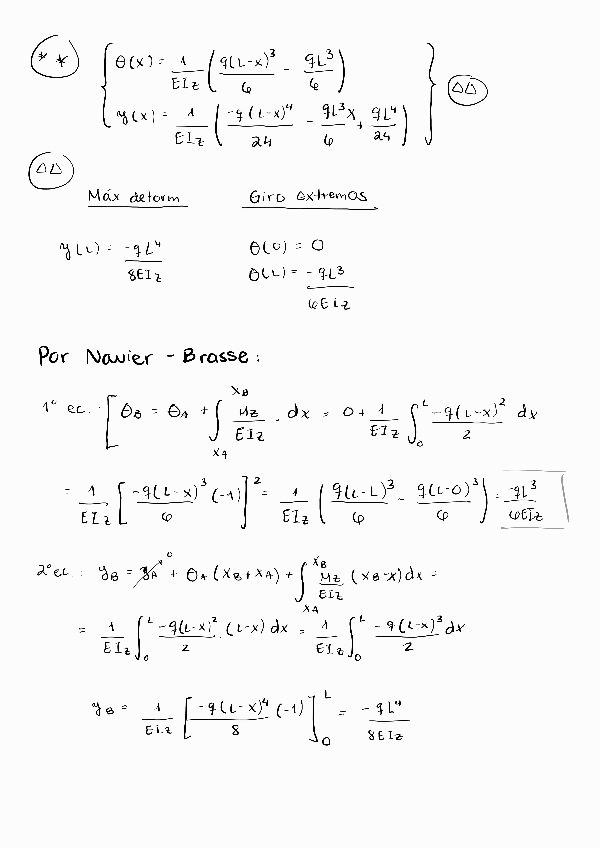 ** { θ(x) = 1/EIz ( q(L-x)³/6 - qL³/6 )
y(x) = 1/EIz ( -q(L-x)⁴/24 - qL³x/6 + qL⁴/24 ) } ΔΔ
ΔΔ
Máx deform Giro extremos
y(L) = -qL⁴/8EIz θ(0) = 0
θ(L) = -qL³/6EIz
Por Navier - Brasse:
1ª ec. [ θB = θA + ∫_xA^xB Mz/EIz · dx = 0 + 1/EIz ∫_0^L -q(L-x)²/2 dx
= 1/EIz [ -q(L-x)³/6 (-1) ]² = 1/EIz ( q(L-L)³/6 - q(L-0)³/6 ) = -qL³/6EIz
2ª ec: yB = yA⁰ + θA (xB + xA) + ∫_xA^xB Mz/EIz (xB-x)dx =
= 1/EIz ∫_0^L -q(L-x)²/2 · (L-x) dx = 1/EIz ∫_0^L -q(L-x)³/2 dx
yB = 1/EIz [ -q(L-x)⁴/8 (-1) ]_0^L = -qL⁴/8EIz